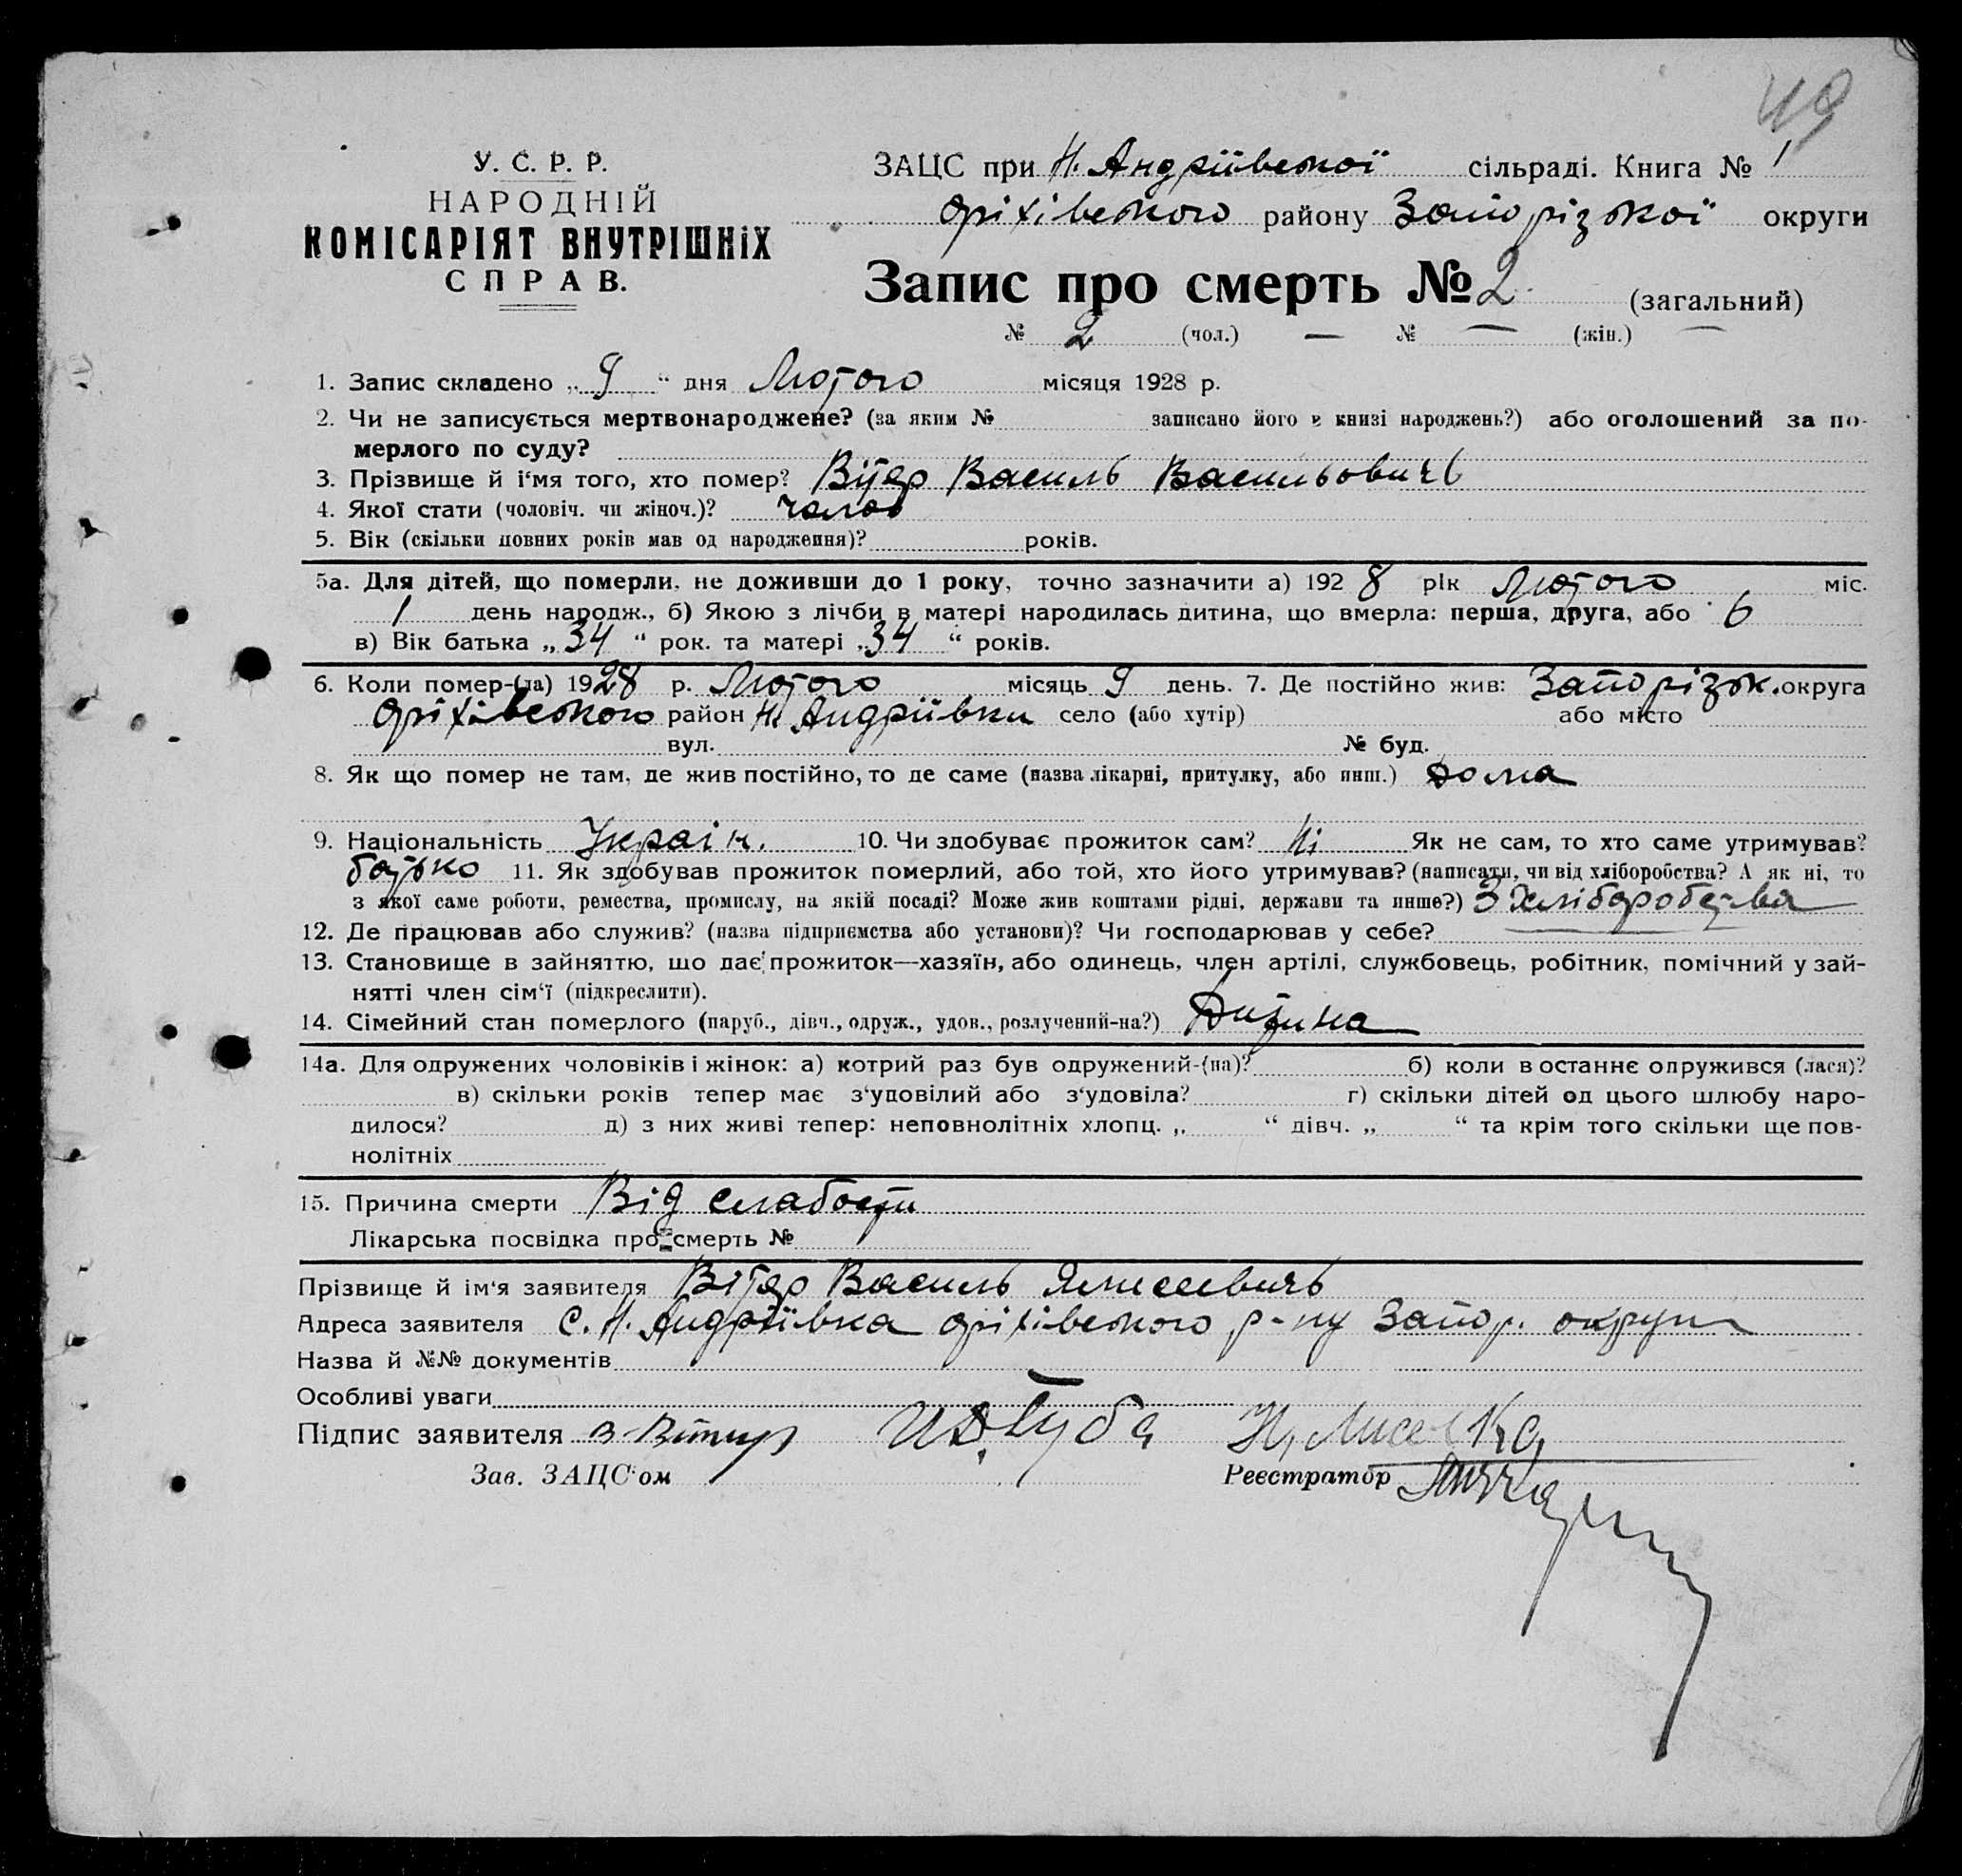 49
У. С. Р. Р.
НАРОДНІЙ
КОМІСАРІЯТ ВНУТРІШНІХ
СПРАВ.
ЗАЦС при Н. Андріївської сільраді. Книга № 1
Оріхівського району Запорізької округи
Запис про смерть № 2 (загальний)
№ 2 (чол.) — № — (жін.)
1. Запис складено „ 9 “ дня Лютого місяця 1928 р.
2. Чи не записується мертвонароджене? (за яким № записано його в книзі народжень?) або оголошений за по-
мерлого по суду?
3. Прізвище й і‘мя того, хто помер? Вітер Василь Васильовичь
4. Якої стати (чоловіч. чи жіноч.)? чолов
5. Вік (скільки повних років мав од народження)? років.
5а. Для дітей, що померли, не доживши до 1 року, точно зазначити а) 192 8 рік Лютого міс.
1 день народж., б) Якою з лічби в матері народилась дитина, що вмерла: перша, друга, або 6
в) Вік батька „ 34 “ рок. та матері „ 34 “ років.
6. Коли помер-(ла) 1928 р. Лютого місяць 9 день. 7. Де постійно жив: Запорізьк. округа
Оріхівського район Н. Андріївки село (або хутір) або місто
вул. № буд.
8. Як що помер не там, де жив постійно, то де саме (назва лікарні, притулку, або инш.) Дома
9. Національність Украін. 10. Чи здобуває прожиток сам? Ні Як не сам, то хто саме утримував?
батько 11. Як здобував прожиток померлий, або той, хто його утримував? (написати, чи від хліборобства? А як ні, то
з якої саме роботи, ремества, промислу, на якій посаді? Може жив коштами рідні, держави та инше?) З хліборобства
12. Де працював або служив? (назва підприємства або установи)? Чи господарював у себе?
13. Становище в зайняттю, що дає прожиток—хазяїн, або одинець, член артілі, службовець, робітник, помічний у зай-
нятті член сім‘ї (підкреслити).
14. Сімейний стан померлого (паруб., дівч., одруж., удов., розлучений-на?) Дитина
14а. Для одружених чоловіків і жінок: а) котрий раз був одружений-(на)? б) коли в останнє одружився (лася)?
в) скільки років тепер має з‘удовілий або з‘удовіла? г) скільки дітей од цього шлюбу наро-
дилося? д) з них живі тепер: неповнолітніх хлопц. „ “ дівч. „ “ та крім того скільки ще пов-
нолітніх
15. Причина смерти Від слабости
Лікарська посвідка про смерть №
Прізвище й ім‘я заявителя Вітер Василь
Адреса заявителя С. Н. Андріївка Оріхівського р-ну Запор. округи
Назва й №№ документів
Особливі уваги
Підпис заявителя В Витер
Зав. ЗАЦС‘ом Реєстратор